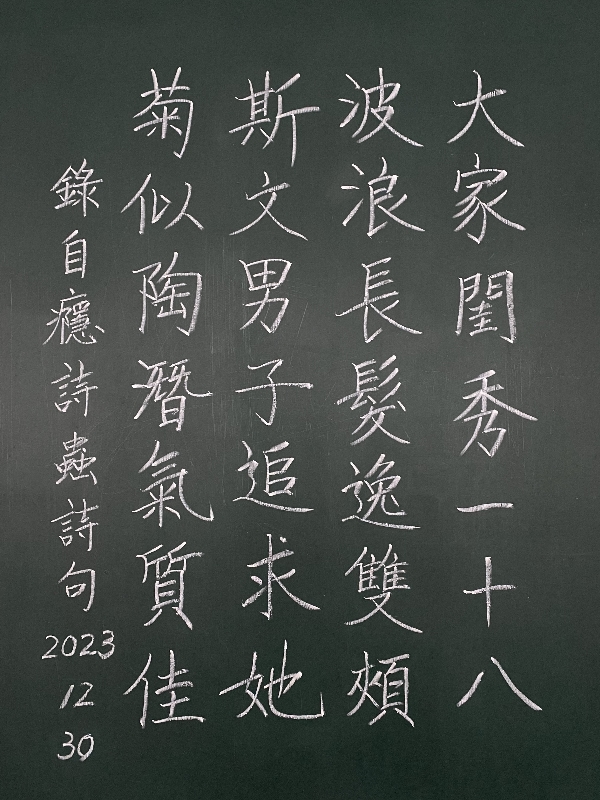 大家閨秀一十八
波浪長髮逸雙頰
斯文男子追求她
菊似陶潛氣質佳
錄自癮詩蟲詩句
2023
12
30